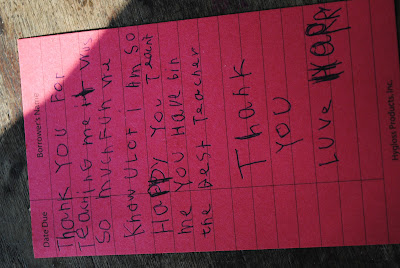 Date Due Borrower's Name
Thank YOU For
TeaChiNg me It
So muchFuN we
KNow ULOT I Am So
HaPPy YOU
me YOU Have biN
the best Teacher
Thank
YOU
LUVe
Hygloss Products, Inc.